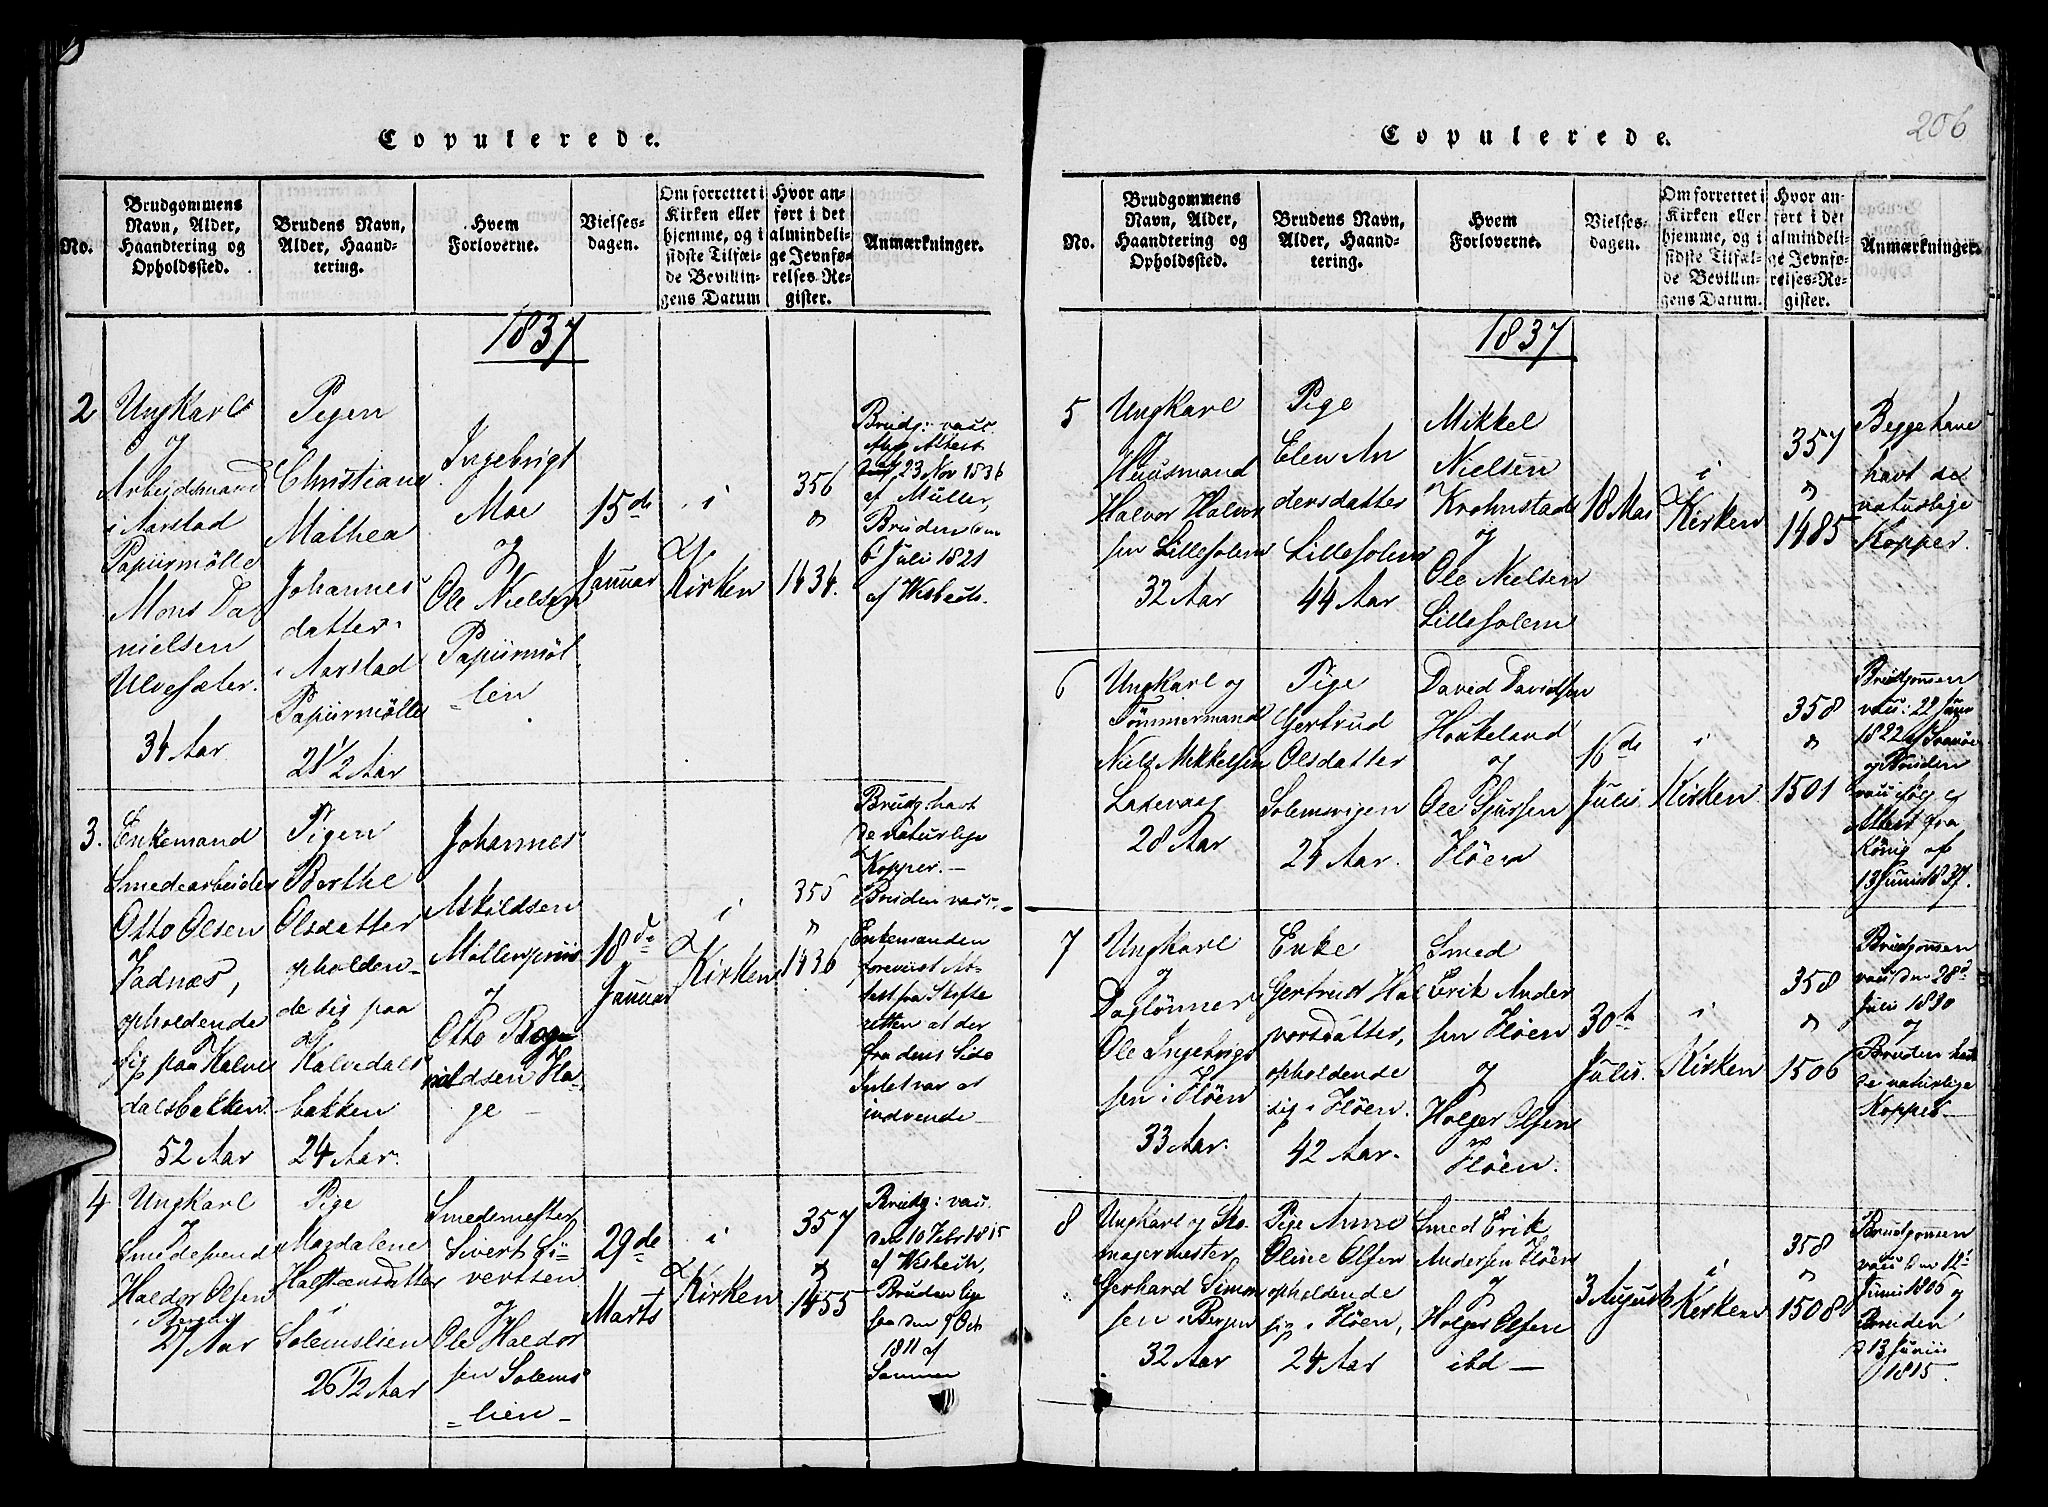 Copulerede.
No.
Brudgommens
Navn, Alder,
Haandtering og
Opholdssted.
Brudens Navn,
Alder, Haand-
tering.
Hvem
Forloverne.
Vielses-
dagen.
Om forrettet i
Kirken eller
hjemme, og i
sidste Tilfæl-
de Bevillin-
gens Datum
Hvor an-
ført i det
almindeli-
ge Jevnfø-
relses-Re-
gister.
Anmærkninger.
1837
2
Ungkarl
og
Arbeidsmand
i Aarstad
Papiirmølle
Mons Da
nielsen
Ulvesæter.
34 Aar
Pigen
Christiane
Mathea
Johannes
datter
i Aarstad
Papiirmølle
21 1/2 Aar
Ingebrigt
Moe
og
Ole Nielsen
Papiirmøl
-len
15de
Januar
i
Kirken
356
1434.
Brudg: vacc.
Attest
23 Nov 1836
af Müller,
Bruden den
6 Juli 1821
af Wesbech.
3.
Enkemand
Smedearbeider
Otto Olsen
Fadnæs,
opholdende
sig paa Kalve
dalsbakken.
52 Aar
Pigen
Berthe
Olsdatter
opholden-
de sig paa
Kalvedals
bakken
24 Aar.
Johannes
Askildsen
Møllenpriis
og
Otto Rogn
valdsen Ha-
ge -
18de
Januar
i
Kirken
355
1436
Brudg. havt
de naturlige
Kopper. -
Bruden vacc.
Enkemanden
foreviist At-
test fra Skifte
retten at der
fra dens Side
Intet var at
indvende -
4
Ungkarl
og
Smedesvend
Haldor Olsen
i Bergen
27 Aar
Pige
Magdalene
Halstensdatter
i
Solemslien
26 1/2 Aar
Smedemester
Sivert Si-
vertsen
og
Ole Haldor
sen Solems
-lien-
29de
Marts
i
Kirken
357
1455
Brudg: vacc.
den 10 Febr 1815
af Wesbech,
Bruden lige
saa den 9 Oct
1811 af
Sammen
206
Copulerede.
No.
Brudgommens
Navn, Alder,
Haandtering og
Opholdssted.
Brudens Navn,
Alder, Haand-
tering.
Hvem
Forloverne.
Vielses-
dagen.
Om forrettet i
Kirken eller
hjemme, og i
sidste Tilfæl-
de Bevillin-
gens Datum.
Hvor an-
ført i det
almindeli-
ge Jevnfø-
relses-Re-
gister.
Anmærkninger.
1837
5
Ungkarl
og
Huusmand
Halvor Halvor
sen Lillesolem
32 Aar
Pige
Elen An
dersdatter
Lillesolem
44 Aar
Mikkel
Nielsen
Krohnstad
og
Ole Nielsen
Lillesolem
18 Mai
i
Kirken
357
1485
Begge have
havt de
naturlige
Kopper.
6
Ungkarl og
Tømmermand
Niels Mikkelsen
Laxevaag
28 Aar
Pige
Gertrud
Olsdatter
Solemsvigen
24 Aar.
Daved Davidsen
Houkeland
og
Ole Sjursen
Fløen
16de
Julii
i
Kirken
358
1501
Brudgomen
vacc: 22 Juni
1822 af Svanøe
og Bruden
vacc følge
Attest fra
König af
13 Juni 1837.
7
Ungkarl
og
Daglønner
Ole Ingebrigt
sen i Fløen
33 Aar.
Enke
Gertrud Hal
vorsdatter,
opholdende
sig i Fløen.
42 Aar.
Smed
Erik Ander
sen Fløen
og
Holger Olsen
Fløen.
30te
Julii
i
Kirken
358
1506
Brudgomen
vacc den 28d
Julii 1810
og
Bruden havt
de naturlige
Kopper
8
Ungkarl og Sko
magermester
Gerhard Simon
sen i Bergen
32 Aar
Pige Anne
Oline Olsen
opholdende
sig i Fløen,
24 Aar
Smed Erik
Andersen Fløen
og
Holger Olsen
ibd -
3 August
i
Kirken
358
1508
Brudgomen
vacc den 12t
Junii 1806 og
Bruden
d 13 Junii
1815.